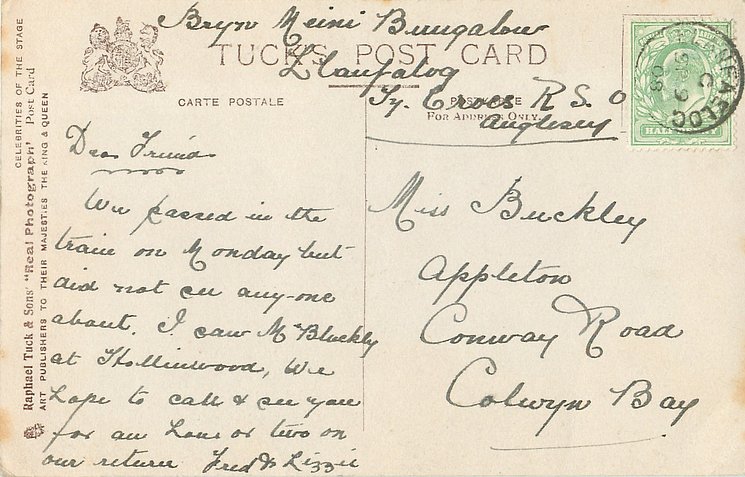 Bryn Meini Bungalow
TUCK'S POST CARD
Llanfalog
CARTE POSTALE
Ty. Croes R.S.O
FOR ADDRESS ONLY.
Anglesey
HALFPENNY
Dear Friend
We passed in the
train on Monday but
did not see any-one
about. I saw Mr Bluckly
at Hollinwood, We
hope to call & see you
for an hour or two on
our return Fred & Lizzie
Miss Buckley
Appleton
Conway Road
Colwyn Bay
CELEBRITIES OF THE STAGE
Raphael Tuck & Sons' "Real Photograph" Post Card
ART PUBLISHERS TO THEIR MAJESTIES THE KING & QUEEN